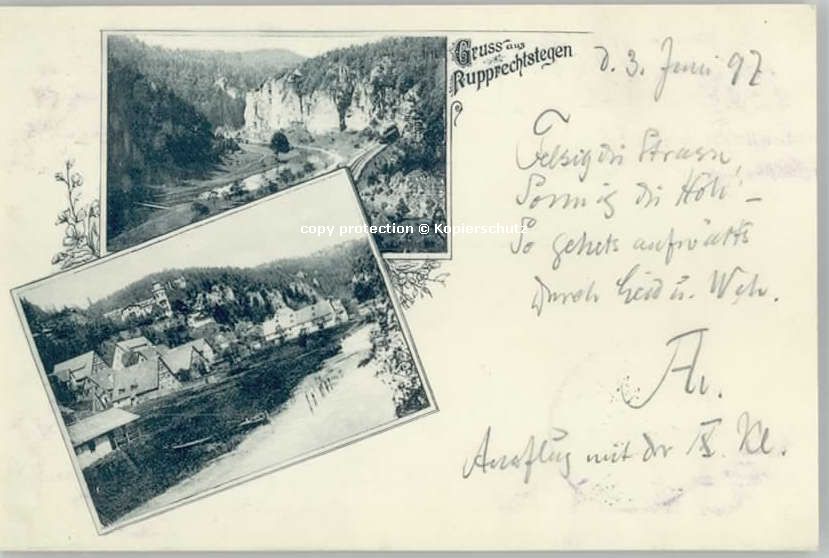 Gruss aus
Rupprechtstegen
d. 3. Juni 97
Felsig die Strassn,
Sonnig die Höh' –
So gehets aufwärts
Durch Leid u. Weh.
Ausflug mit der IX. Kl.
copy protection © Kopierschutz